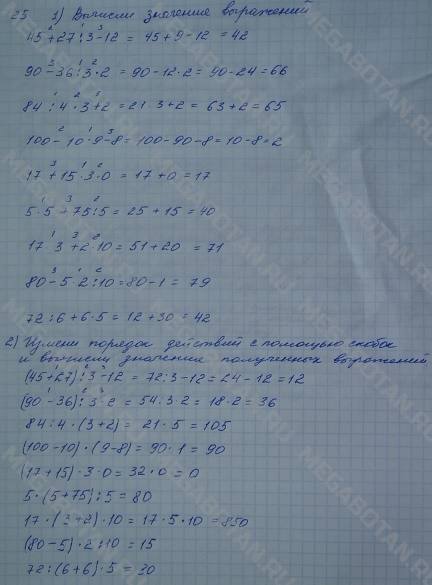 25 1) Вычисли значение выражений
45+27:3-12 = 45+9-12 = 42
90-36:3·2 = 90-12·2 = 90-24=66
84:4·3+2 = 21 3+2 = 63+2=65
100-10·9-8=100-90-8=10-8=2
17+15·3·0 = 17+0=17
5·5+75:5 = 25+15=40
17·3+2·10=51+20 = 71
80-5·2:10=80-1 = 79
72:6+6·5 = 12+30 = 42
2) Измени порядок действий с помощью скобок
и вычисли значения полученных выражений
(45+27):3-12 = 72:3-12=24-12=12
(90-36):3·2 = 54:3·2 = 18·2=36
84:4·(3+2) = 21·5 = 105
(100-10)·(9-8)= 90·1 = 90
(17+15)·3·0=32·0=0
5·(5+75):5 = 80
17·(3+2)·10 = 17·5·10=850
(80-5)·2:10 = 15
72:(6+6)·5 = 30
MEGABOTAN.RU